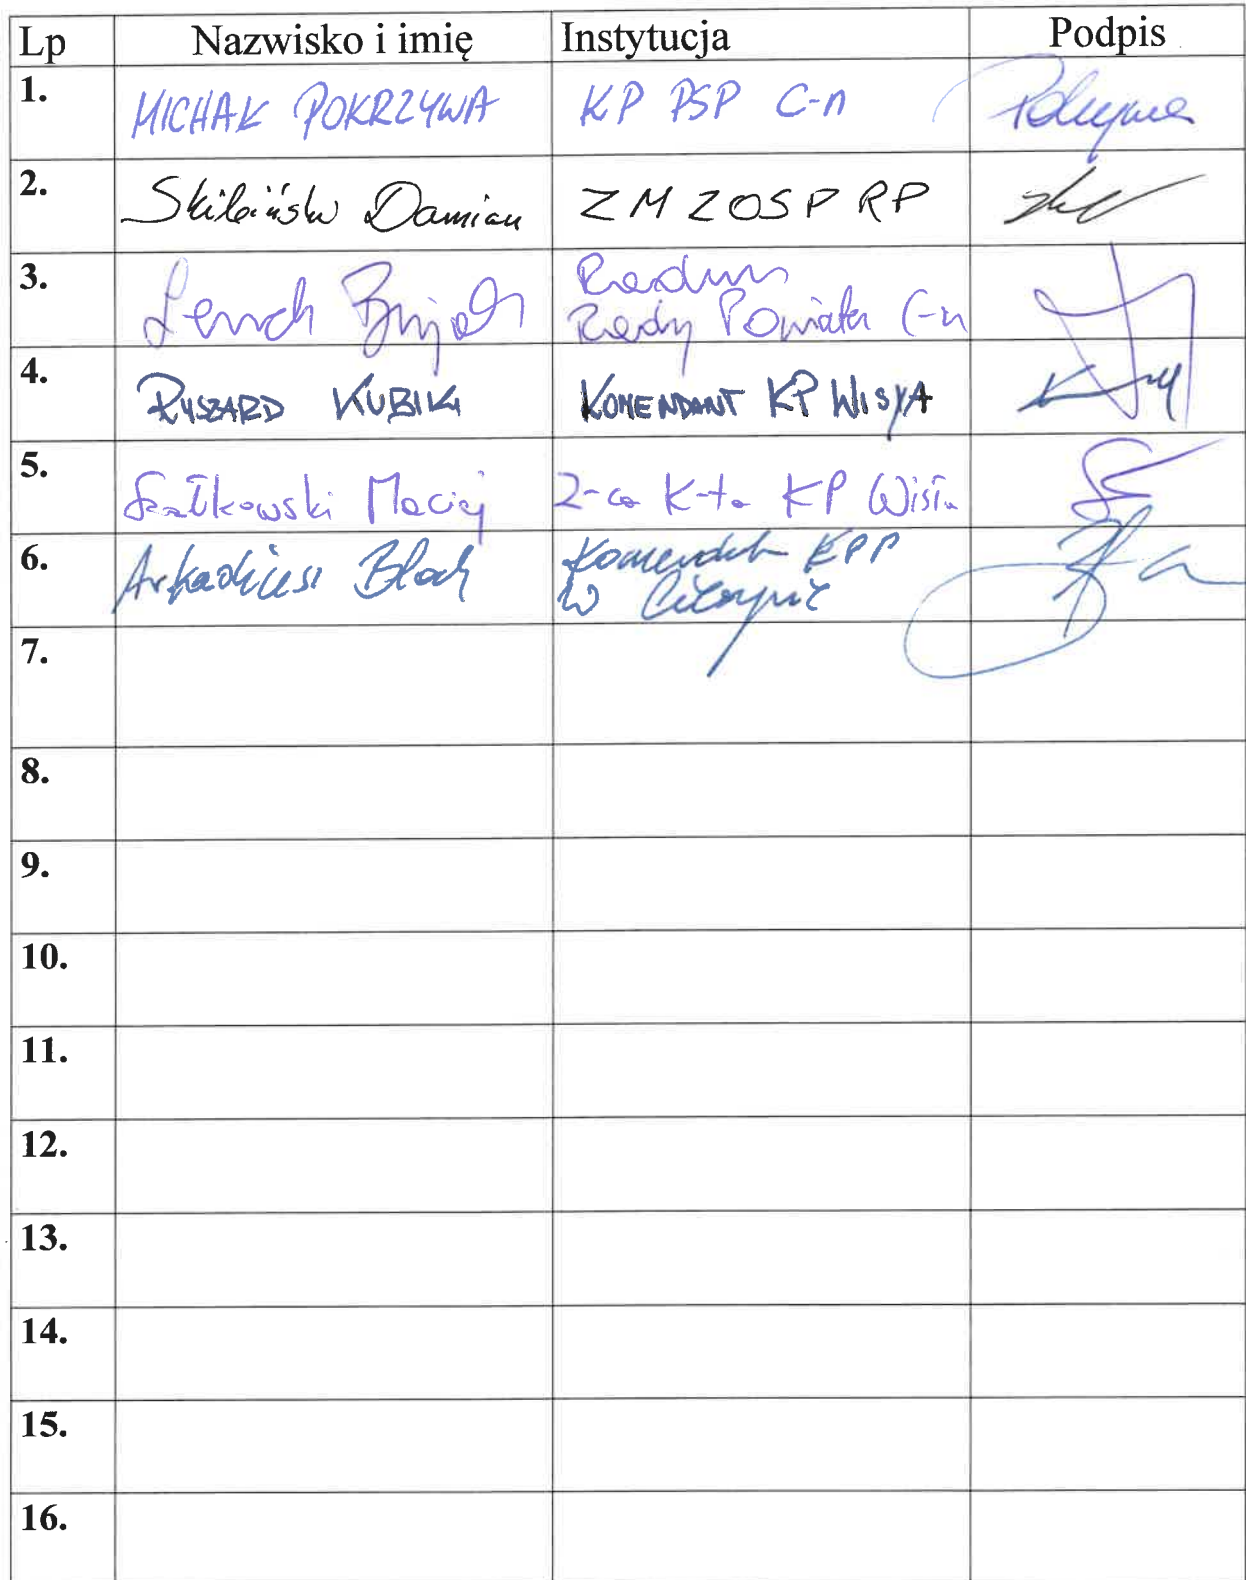 Lp Nazwisko i imię Instytucja Podpis
1. MICHAŁ POKRZYWA KP PSP C-n
2. Damian ZM ZOSP RP
3. Radny
Rady Powiatu C-n
4. RYSZARD KUBIK KOMENDANT KP WISŁA
5. Szałkowski Maciej Z-ca K-ta KP Wisła
6. Arkadiusz Komendant KPP
w Cieszynie
7.
8.
9.
10.
11.
12.
13.
14.
15.
16.